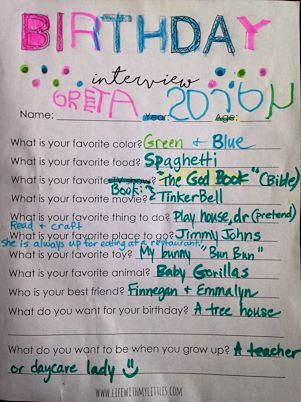 BIRTHDAY
interview
GRETA 2016 4
Name: Year: Age:
What is your favorite color? Green + Blue
What is your favorite food? Spaghetti
What is your favorite TV show? "The God Book" (Bible)
Book:
What is your favorite movie? TinkerBell
What is your favorite thing to do? Play house, dr (pretend)
Read + craft
What is your favorite place to go? Jimmy Johns
She is always up for eating at a restaurant..
What is your favorite toy? My bunny "Bun Bun"
What is your favorite animal? Baby Gorillas
Who is your best friend? Finnegan + Emmalyn
What do you want for your birthday? A tree house
What do you want to be when you grow up? A teacher
or daycare lady
WWW.LIFEWITHMYLITTLES.COM